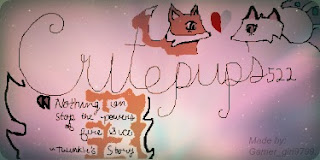 Cutepups522
Nothing can
Stop the powers
of fire & ice
in Twinkle's Story
Made by: